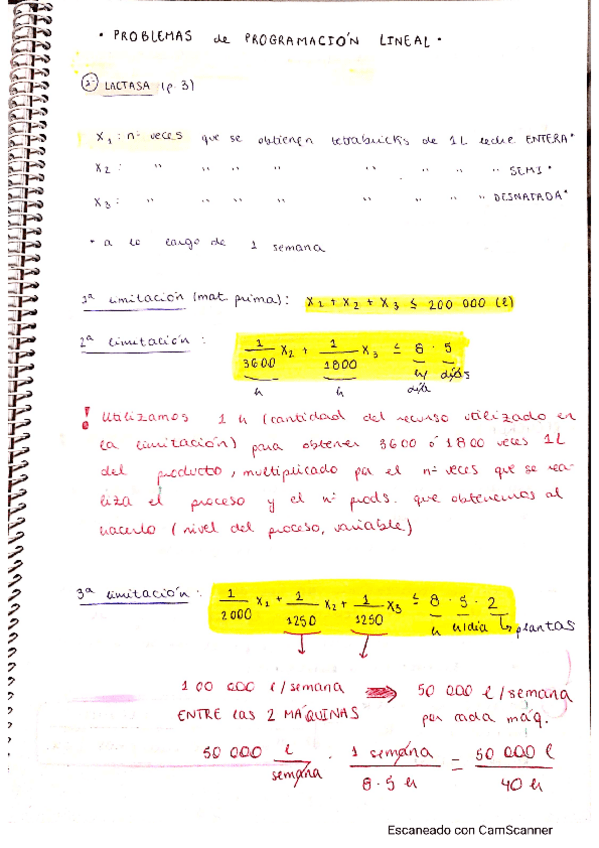 • PROBLEMAS de PROGRAMACIÓN LINEAL •
2- LACTASA (p. 3)
X₁ : nº veces que se obtienen tetrabricks de 1L leche ENTERA*
X₂ : " " " " " " " " SEMI*
X₃ : " " " " " " " " DESNATADA*
* a lo largo de 1 semana
1ª limitación (mat prima): X₁ + X₂ + X₃ ≤ 200 000 (l)
2ª limitación : 1/3600 X₂ + 1/1800 X₃ ≤ 8 · 5
h h h/día días
! Utilizamos 1 h (cantidad del recurso utilizado en
la limitación) para obtener 3600 ó 1800 veces 1L
del producto, multiplicado por el nº veces que se rea-
liza el proceso y el nº prods. que obtenemos al
hacerlo (nivel del proceso, variable)
3ª limitación : 1/2000 X₁ + 1/1250 X₂ + 1/1250 X₃ ≤ 8 · 5 · 2
h h/día plantas
100 000 l/semana ⇒ 50 000 l/semana
ENTRE las 2 MÁQUINAS por cada máq.
50 000 l/semana · 1 semana/8·5 h = 50 000 l/40 h
Escaneado con CamScanner